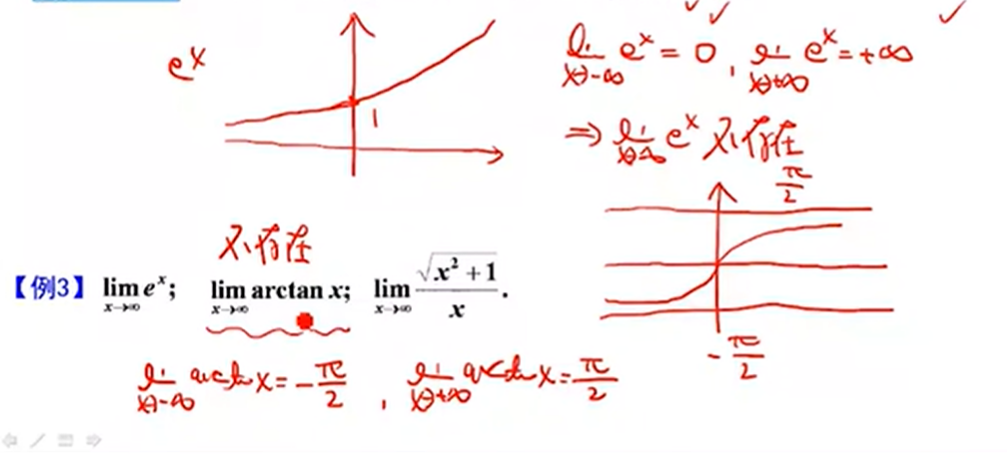 eˣ
1
lim x→-∞ eˣ = 0, lim x→+∞ eˣ = +∞
⇒ lim x→∞ eˣ 不存在
π/2
不存在
【例3】 lim x→∞ eˣ; lim x→∞ arctan x; lim x→∞ √(x² + 1)/x.
-π/2
lim x→-∞ arctan x = -π/2, lim x→+∞ arctan x = π/2